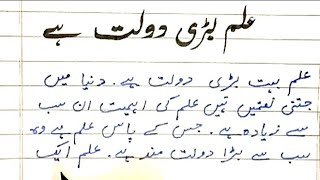 علم بڑی دولت ہے
علم بہت بڑی دولت ہے۔ دنیا میں
جتنی نعمتیں ہیں علم کی اہمیت ان سب
سے زیادہ ہے۔ جس کے پاس علم ہے وہ
سب سے بڑا دولت مند ہے۔ علم ایک